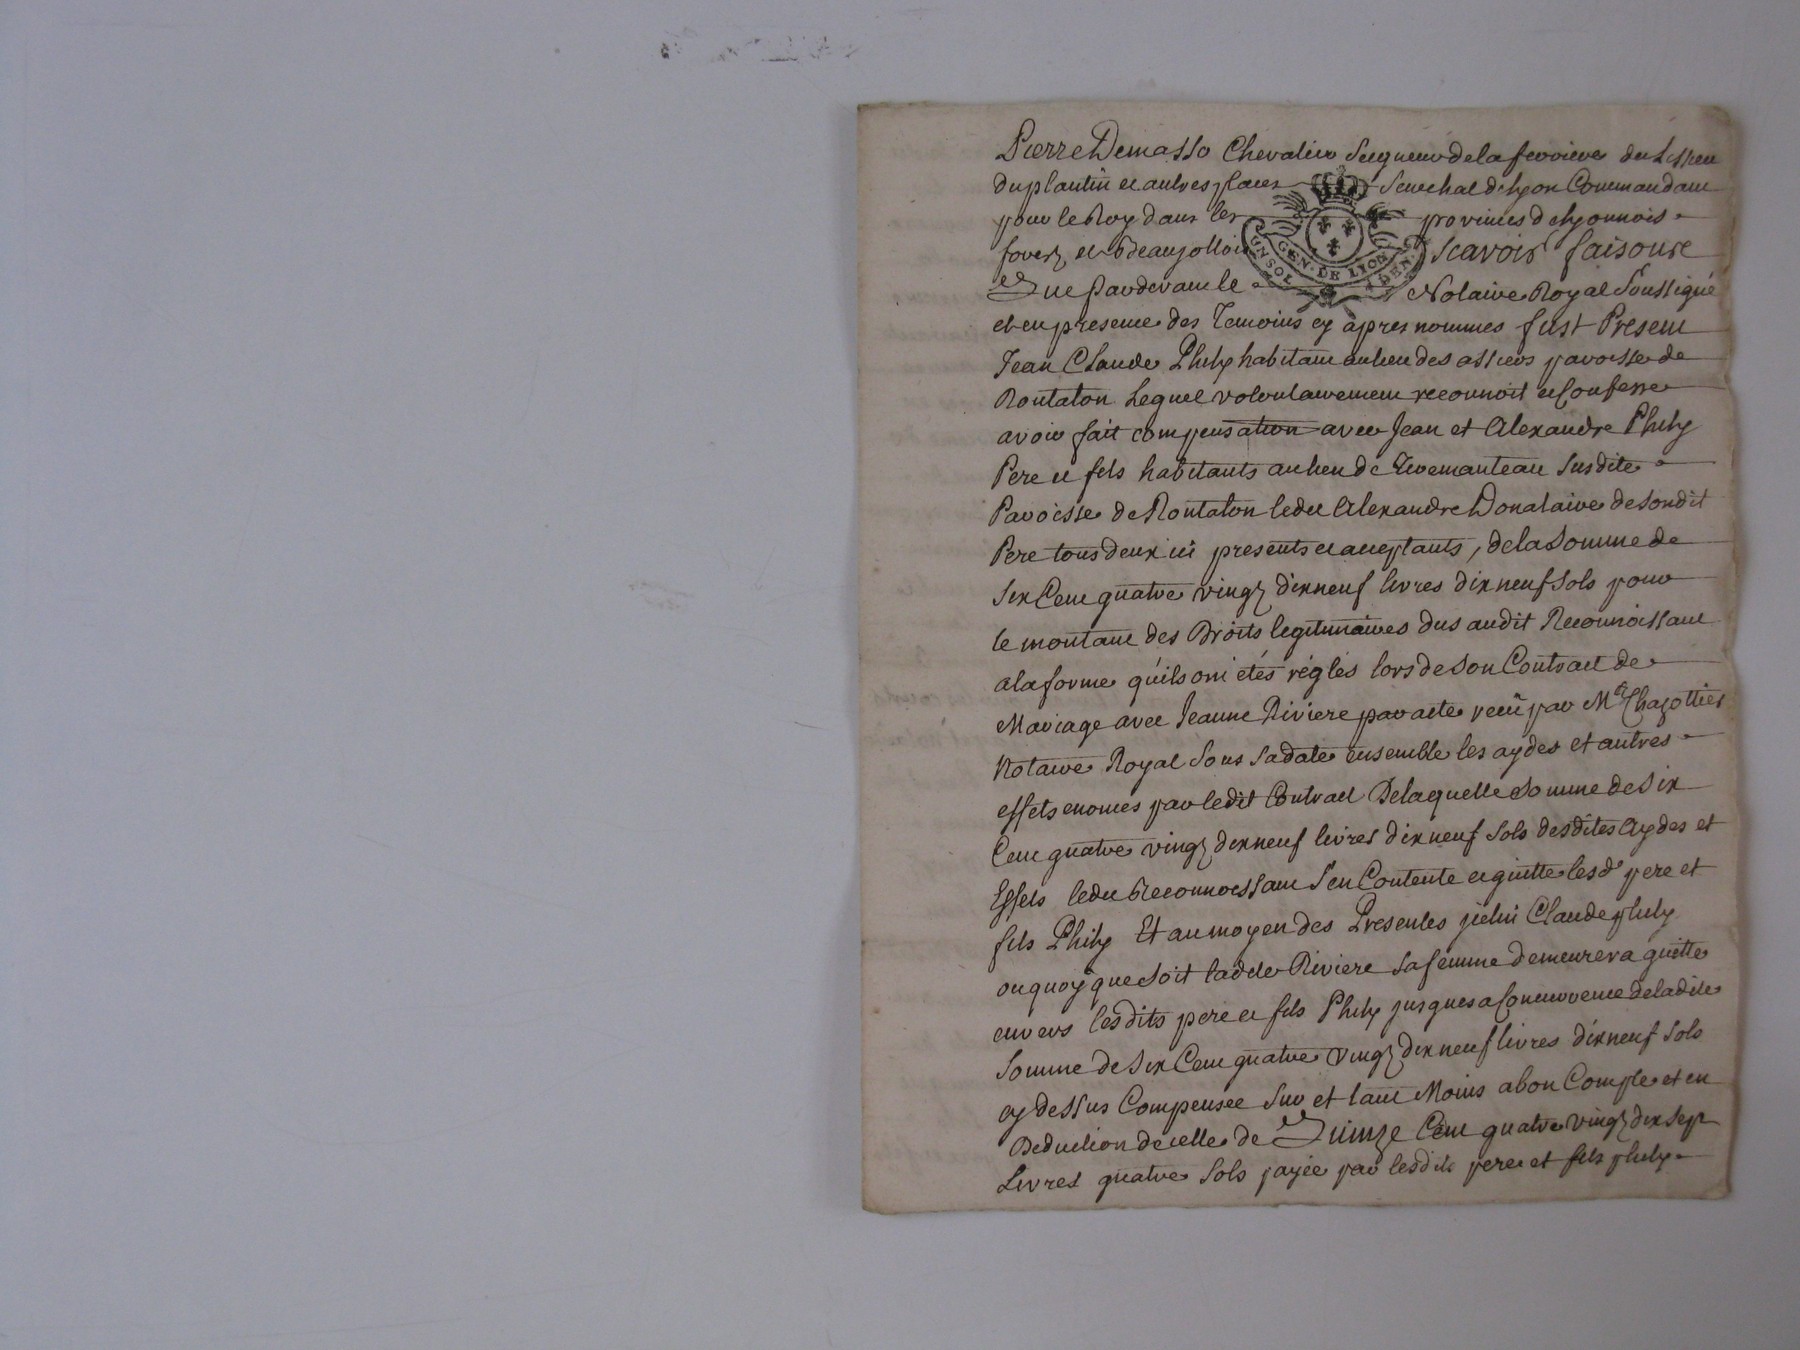 Pierre Demasso Chevalier Seigneur de la ferriere du Lissieu
du plantin et autres places Senechal de Lyon Commandant
pour le Roy dans les provinces de Lyonnois
forez et Beaujollois Scavoir faisons
Que Pardevant le Notaire Royal Soussigné
et en presence des Temoins cy apres nommes fust Present
Jean Claude Phily habitant au lieu des assiers paroisse de
Rontalon Lequel volontairement reconnoit et Confesse
avoir fait compensation avec Jean et Alexandre Phily
Pere et fils habitants au lieu de Tiremanteau Susdite
Paroisse de Rontalon ledit Alexandre Donataire de sondit
Pere tous deux ici presents et acceptants, de la Somme de
Six Cent quatre vingz dixneuf livres dix neuf Sols pour
le montant des Droits legitimaires dus audit Reconnoissant
a la forme qu'ils ont étés réglés lors de Son Contract de
Mariage avec Jeanne Riviere par acte recû par Me Chazottier
Notaire Royal Sous Sa date ensemble les aydes et autres
effets enomés par ledit Contract De laquelle Somme de Six
Cent quatre vingz dixneuf livres dix neuf Sols desdites Aydes et
Effets ledit Reconnoissant S'en Contente et quitte lesd. pere et
fils Phily Et au moyen des Presentes icelui Claude phily
ou quoy que Soit ladite Riviere Sa femme demeurera quitte
envers lesdits pere et fils Phily jusques a Concurrence de ladite
Somme de Six Cent quatre vingz dix neuf livres dix neuf Sols
cy dessus Compensée Sur et tant Moins a bon Compte et en
Deduction de celle de Quinze Cent quatre vingz dix sept
Livres quatre Sols payée par lesdits pere et fils phily
GEN. DE LYON